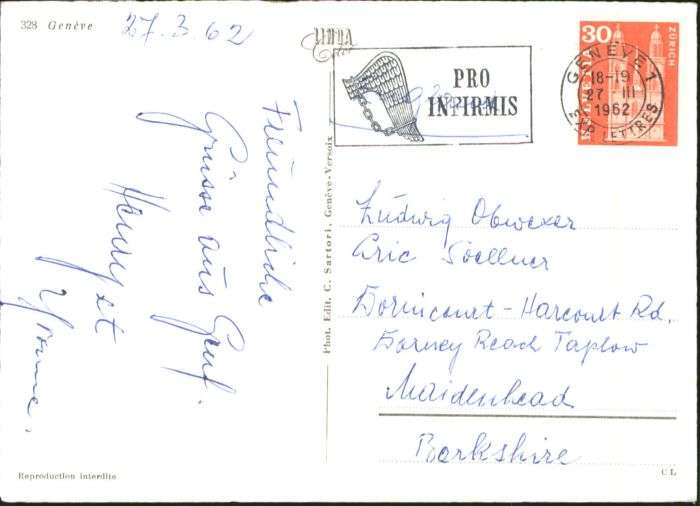 328 Genève
27.3 62
30
ZÜRICH
HELVETIA
PRO
INFIRMIS
GENÈVE 1
18-19
27 III
1962
EXP. LETTRES
Freundliche
Grüsse aus Genf.
Henry et
Yvonne.
Phot. Edit. C. Sartori, Genève-Versoix
Ludwig Obwexer
Eric Soellner
Dornincourt - Harcourt Rd.
Dorney Reach Taplow
Maidenhead
Berkshire
Reproduction interdite
C L